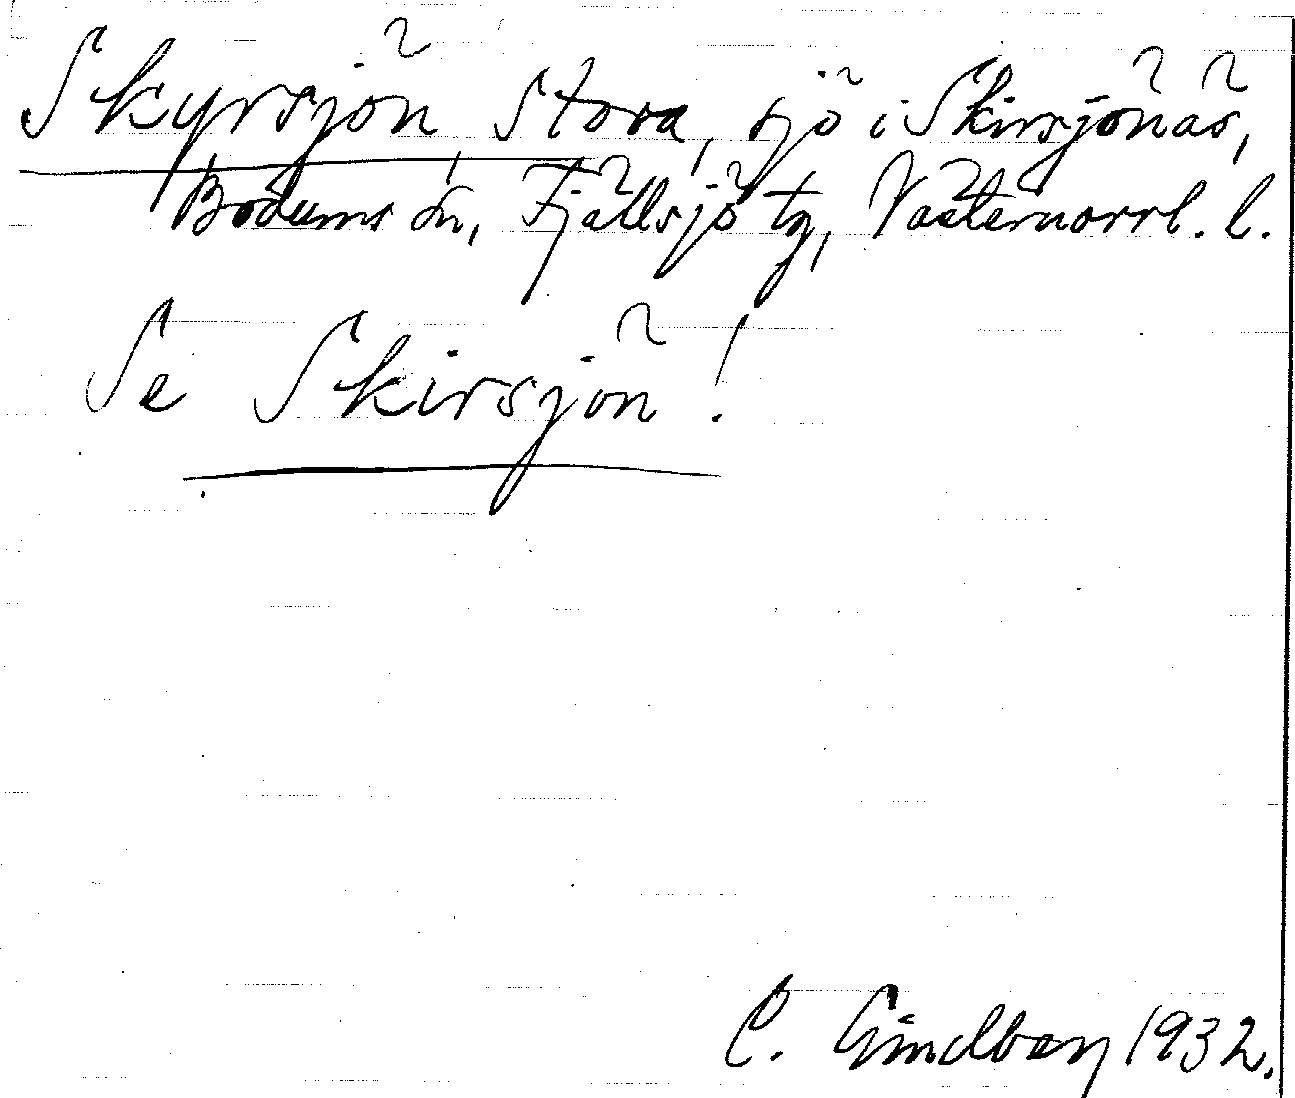 Skyrsjön, Stora, sjö i Skirsjönäs,
Bodums sn, Fjällsjö tg, Västernorrl. l.
Se Skirsjön!
C. Lindberg 1932.